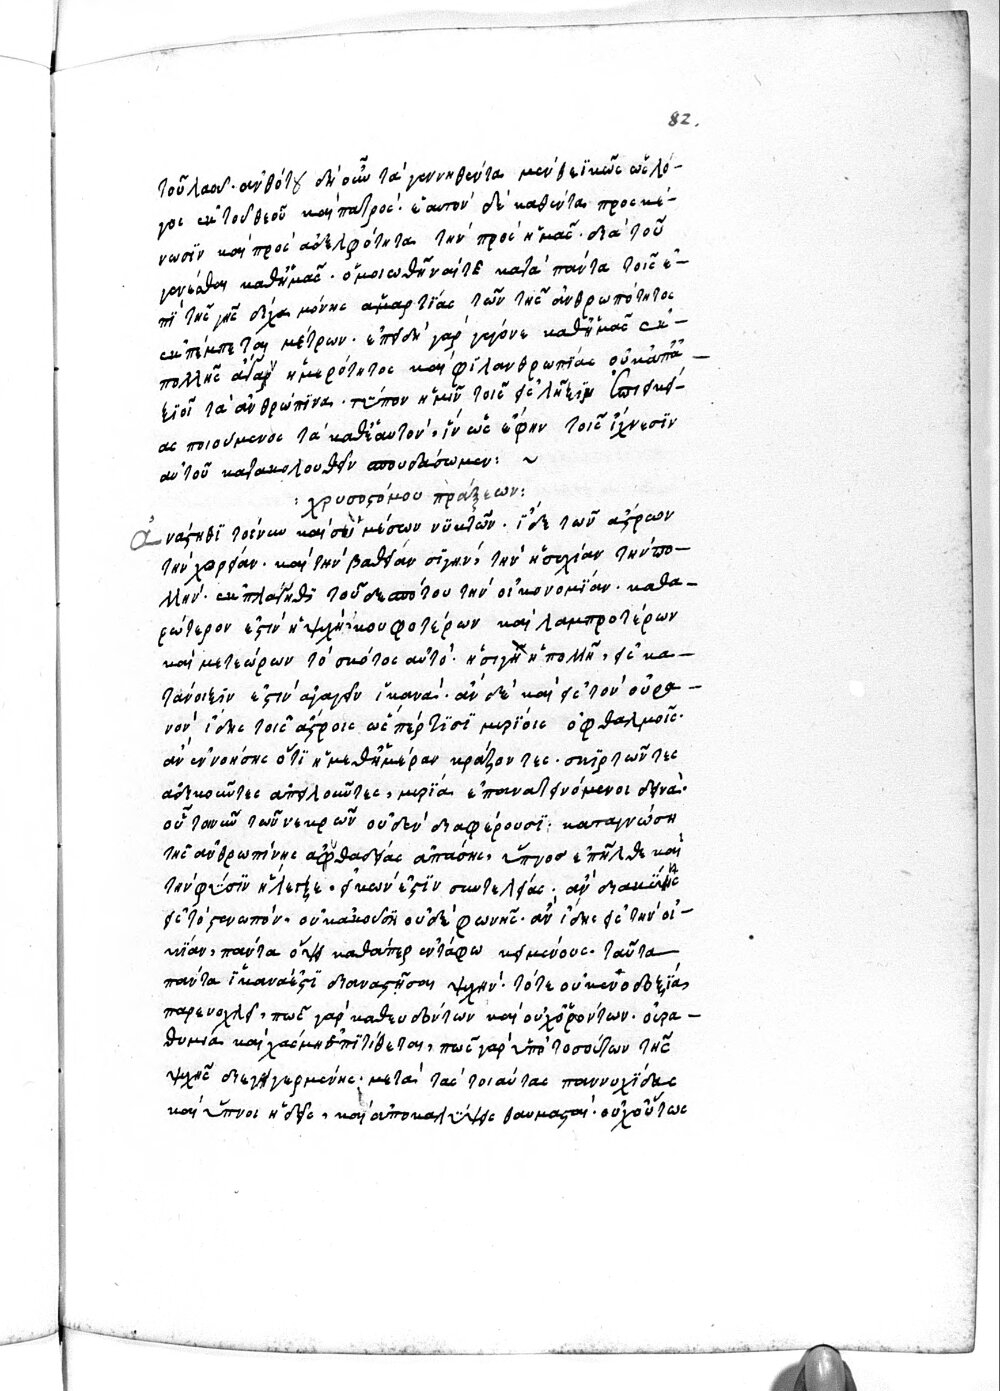 82.
τοῦ λαοῦ· ἀνθότου δὴ οὖν τὰ γεννηθέντα μὲν θεϊκῶς ὡς λό-
γος ἐκ τοῦ θεοῦ καὶ πατρὸς· ἑαυτὸν δὲ καθέντα πρὸς κέ-
νωσϊν καὶ πρὸς ἀδελφότητα τὴν πρὸς ἡμᾶς· διὰ τοῦ
γενέσθαι καθ' ἡμᾶς· ὁμοιωθῆναί τε κατὰ πάντα τοῖς ἐ-
πὶ τῆς γῆς δίχα μόνης ἁμαρτίας τῶν τῆς ἀνθρωπότητος
μέτρων· ἐπειδὴ γὰρ γέγονε καθ' ἡμᾶς ἐκ
πολλῆς ἄγαν ἡμερότητος καὶ φϊλανθρωπίας οὐκ ἀπα-
ξϊοῖ τὰ ἀνθρώπϊνα· τύπον ἡμῖν τοῖς
ας ποιούμενος τὰ καθ' ἑαυτὸν, ἵν' ὡς ἔφην τοῖς ἴχνεσϊν
αὐτοῦ κατακολουθεῖν σπουδάσωμεν: ~
: χρυσοστόμου πράξεων:
ἀνάστηθϊ τοίνυν καὶ σὺ μέσων νϋκτῶν· ἴδε τῶν ἄστρων
τὴν χορείαν· καὶ τὴν βαθεῖαν σϊγὴν, τὴν ἡσυχίαν τὴν πο-
λλὴν· ἐκπλάγηθϊ τοῦ δεσπότου τὴν οἰκονομίαν· καθα-
ρώτερον ἐστὶν ἡ ψυχὴ, κουφοτέρων καὶ λαμπροτέρων
καὶ μετεώρων τὸ σκότος αὐτὸ· ἡ σιγὴ ἡ πολλὴ, εἰς κα-
τάνυξϊν ἐστὶν ἀγαγεῖν ἱκαναὶ· ἂν δὲ καὶ εἰς τὸν οὐρα-
νὸν ἴδης τοῖς ἄστροις ὥσπερ τϊσϊ μυρϊοις ὀφθαλμοῖς·
ἂν ἐννοήσης ὅτϊ ἡ μεθ' ἡμέραν κράζοντες· σκϊρτῶντες
ἀδϊκοῦντες ἀπειλοῦντες, μυρϊα ἐπανατεινόμενοι δεινὰ·
οὗτοι νῦν τῶν νεκρῶν οὐδὲν διαφέρουσϊ· καταγνώση
τῆς ἀνθρωπίνης αὐθαδείας ἁπάσης, ὕπνος ἐπῆλθε καὶ
τὴν φύσϊν ἤλεγξε, εἰκών ἐστϊν συντελείας· ἂν διακύψης
εἰς τὸ στενωπὸν, οὐκ ἀκούση οὐδὲ φωνῆς· ἂν ἴδης εἰς τὴν οἰ-
κίαν, πάντα ὄψει καθάπερ ἐν τάφω κειμένους· ταῦτα
πάντα ἱκανά ἐστϊ διαναστῆσαι ψυχὴν· τότε οὐ κενοδοξία,
παρενοχλεῖ, πῶς γὰρ καθευδόντων καὶ οὐχ ὁρώντων· οὐ ρα-
θυμία καὶ χάσμη ἐπϊτίθεται, πῶς γὰρ ὑπὸ τοσούτων τῆς
ψυχῆς διεγηγερμένης· μετὰ τὰς τοιαύτας παννυχίδας
καὶ ὕπνοι ἡδεῖς, καὶ ἀποκαλύψεις θαυμασταὶ· οὐχ οὕτως